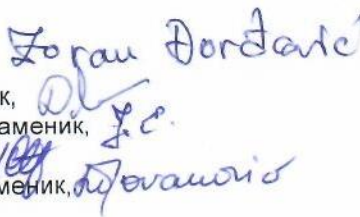 Zoran Đorđević
к,
аменик, J.C.
меник, Jovanović